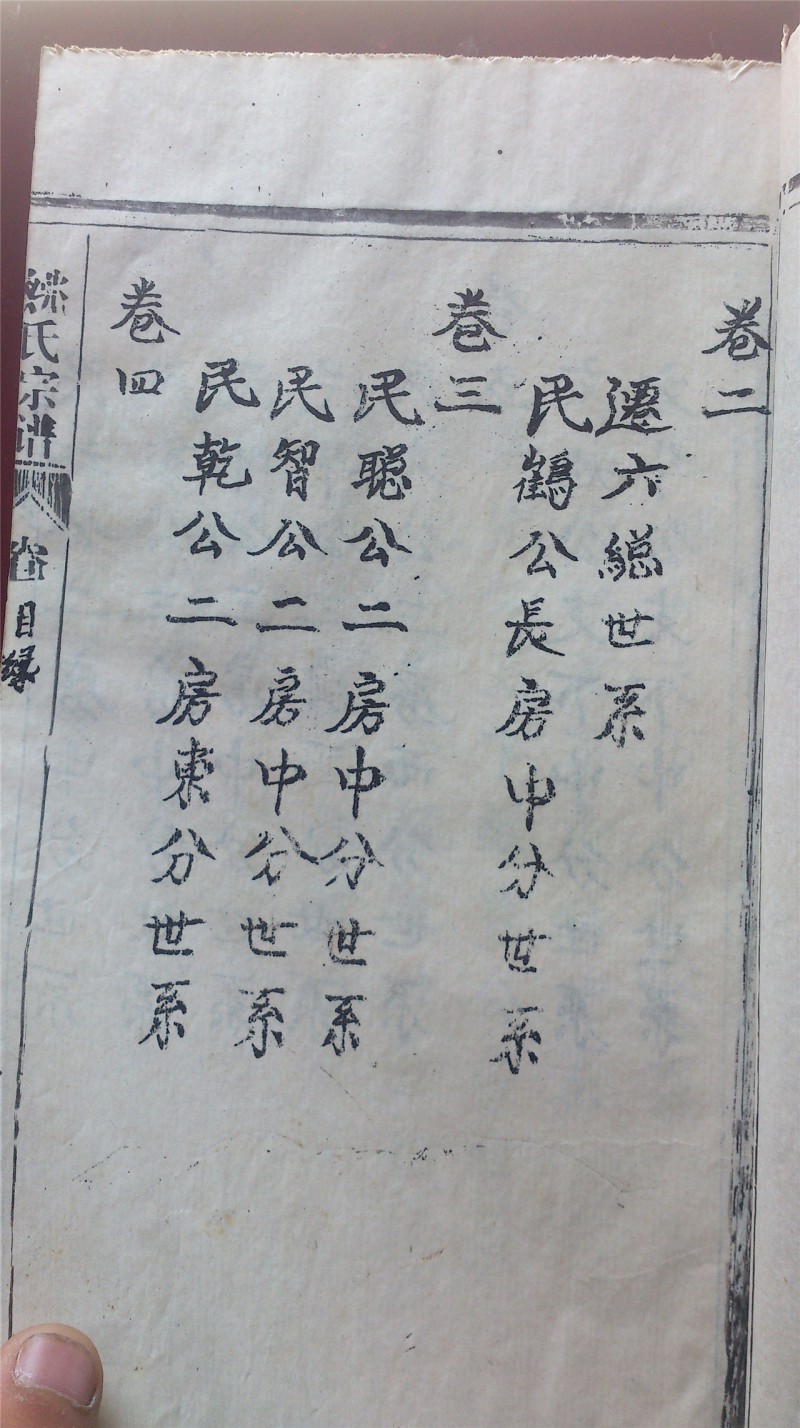 卷二
遷六總世系
民鶴公長房中分世系
卷三
民聰公二房中分世系
民智公二房中分世系
民乾公二房東分世系
卷四
氏宗譜 卷 目錄